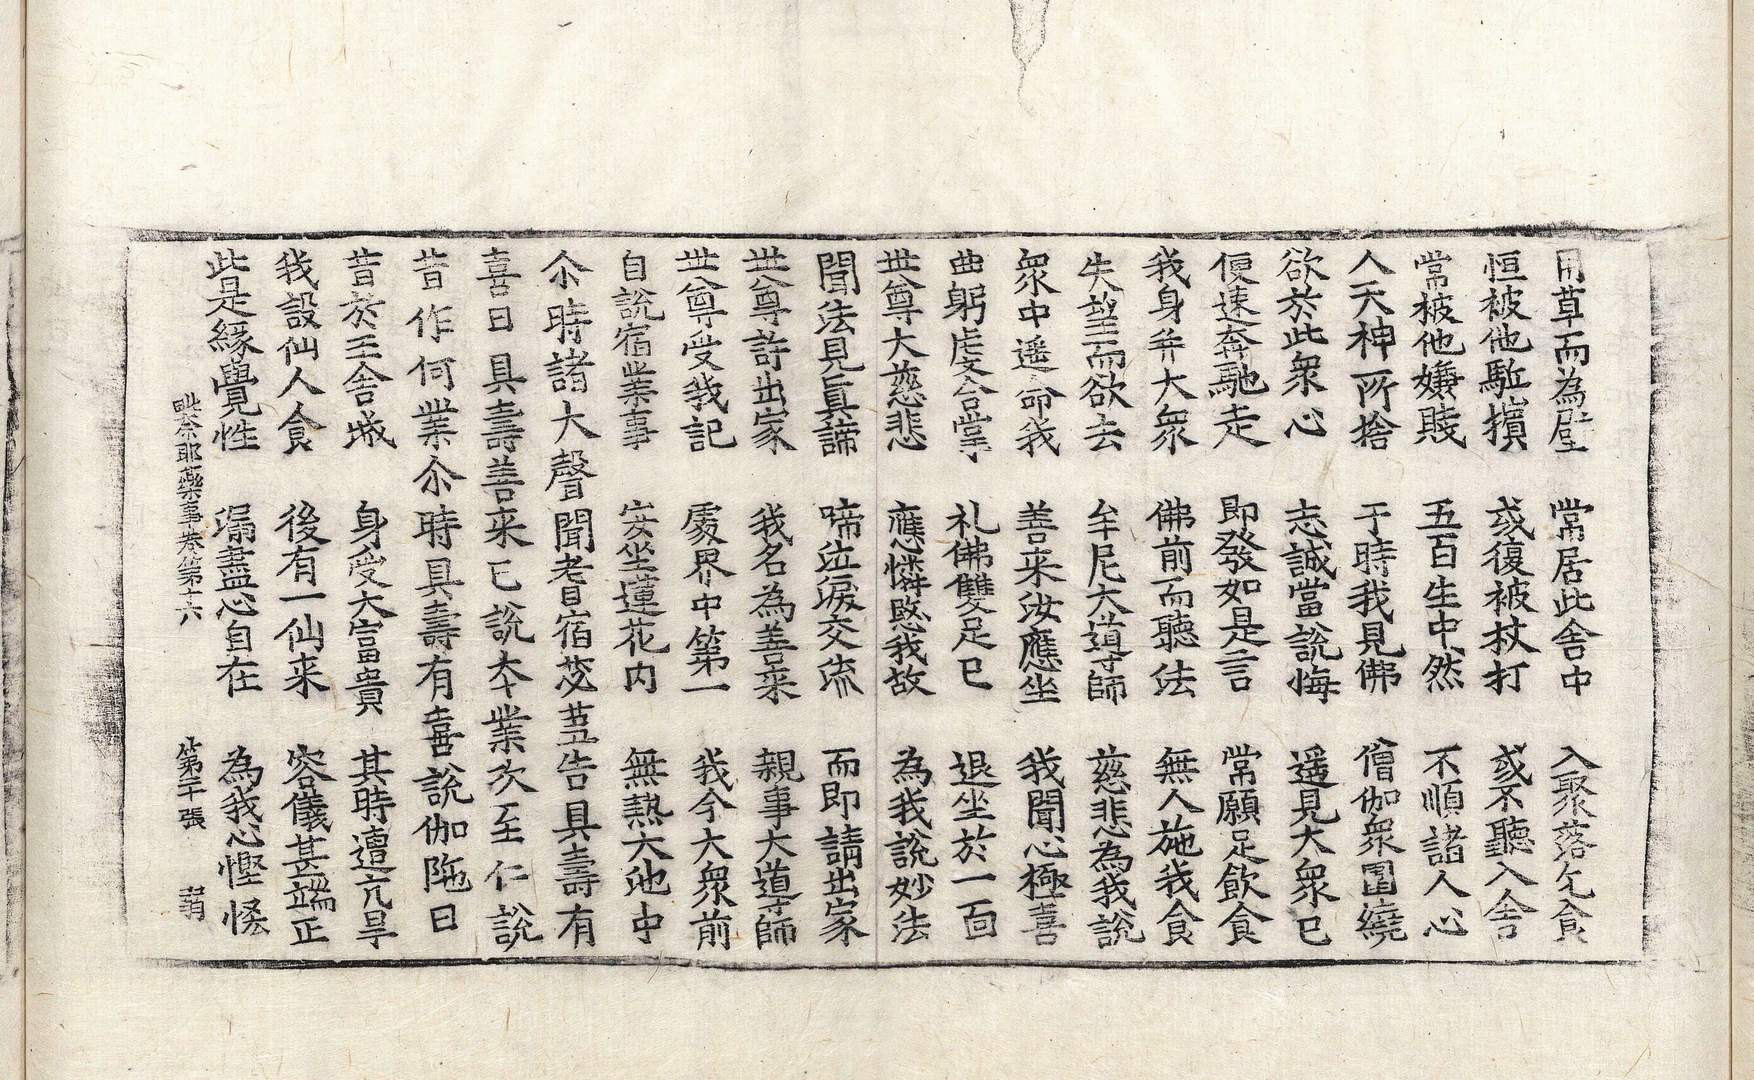 用草而為壁 常居此舍中 入聚落乞食
恒被他駈擯 或復被杖打 或不聽入舍
常被他嫌賤 五百生中然 不順諸人心
人天神所捨 于時我見佛 僧伽衆圍繞
欲於此衆心 志誠當說悔 遥見大衆已
便速奔馳走 即發如是言 常願足飲食
我身并大衆 佛前而聽法 無人施我食
失望而欲去 牟尼大導師 慈悲為我說
衆中遥命我 善来汝應坐 我聞心極喜
曲躬虔合掌 礼佛雙足已 退坐於一面
世尊大慈悲 應憐愍我故 為我說妙法
聞法見眞諦 啼泣淚交流 而即請出家
世尊許出家 我名為善来 親事大導師
世尊受我記 處界中第一 我今大衆前
自說宿業事 安坐蓮花内 無熱大池中
尒時諸大聲聞耆宿苾蒭告具壽有
喜曰具壽善来已說本業次至仁說
昔作何業尒時具壽有喜說伽陁曰
昔於王舍城 身受大富貴 其時遭亢旱
我設仙人食 後有一仙来 容儀甚端正
此是緣覺性 漏盡心自在 為我心慳悋
毗奈耶藥事卷第十六 第二十張